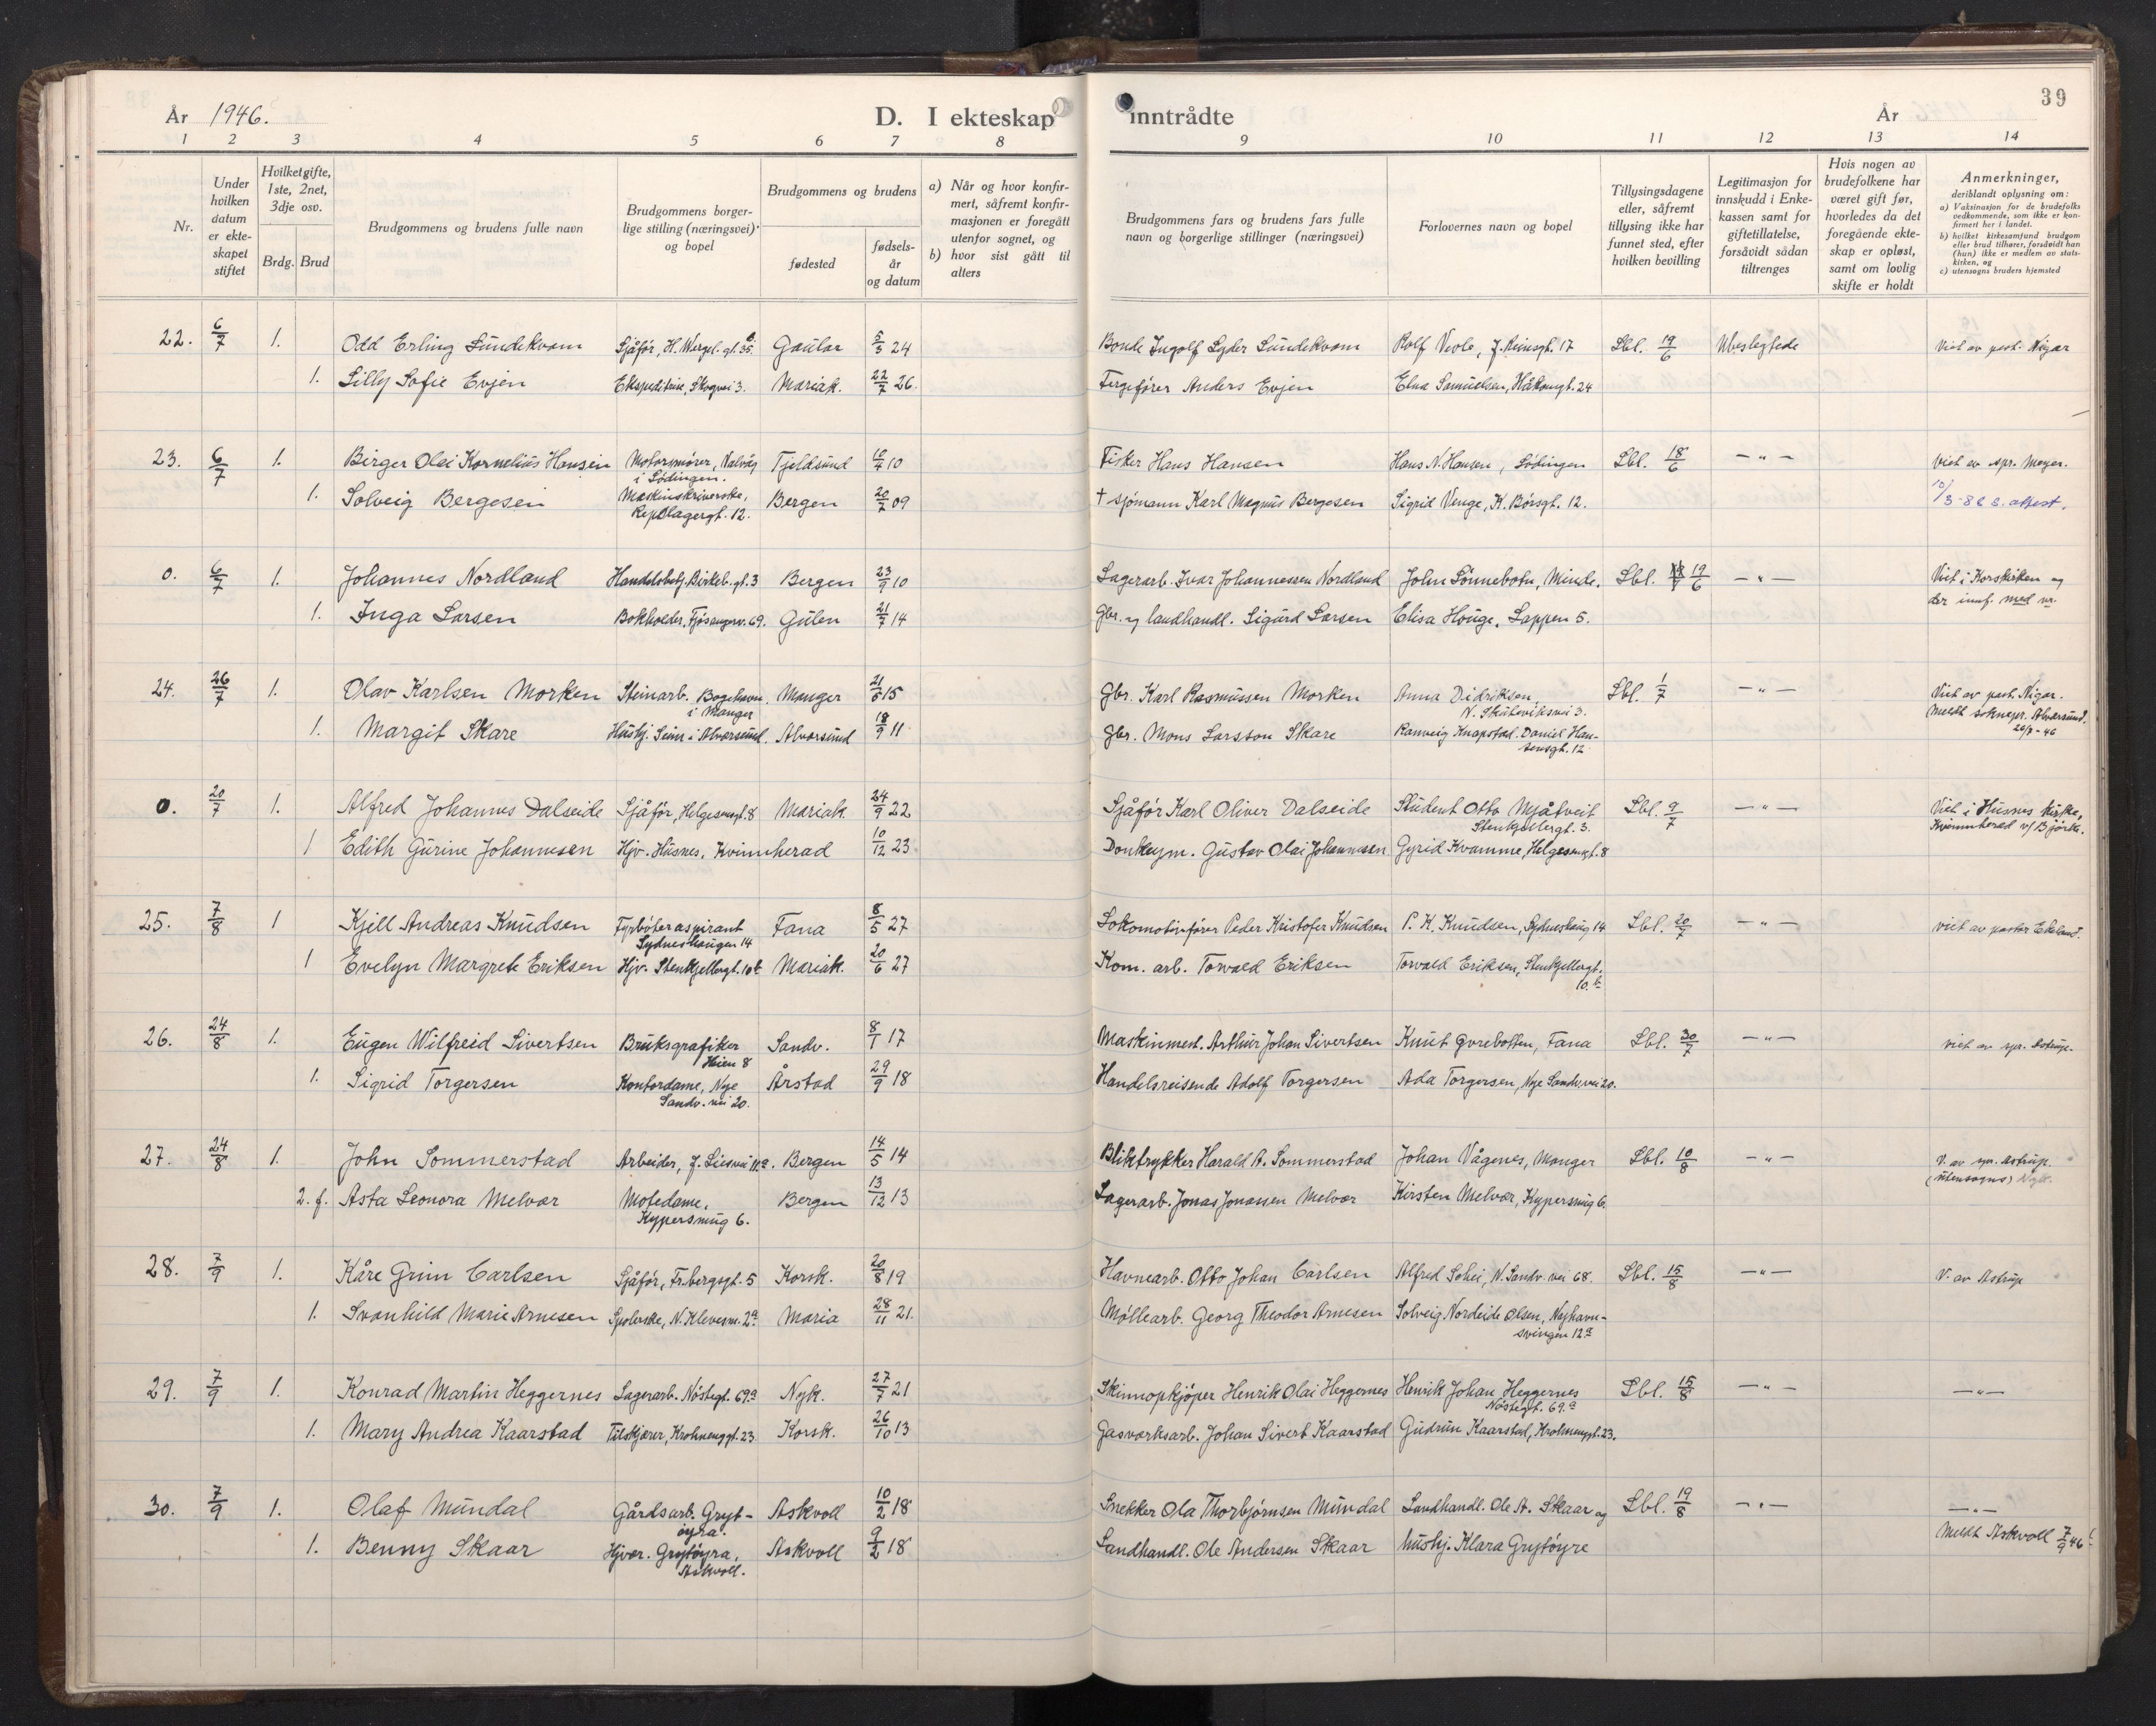 39
År 1946. D. I ekteskap inntrådte År
1 2 3 4 5 6 7 8 9 10 11 12 13 14
Nr.
Under hvilken datum er ekteskapet stiftet
Hvilket gifte, 1ste, 2net, 3dje osv.
Brdg. Brud
Brudgommens og brudens fulle navn
Brudgommens borgerlige stilling (næringsvei) og bopel
Brudgommens og brudens
fødested
fødselsår og datum
a) Når og hvor konfirmert, såfremt konfirmasjonen er foregått utenfor sognet, og
b) hvor sist gått til alters
Brudgommens fars og brudens fars fulle navn og borgerlige stillinger (næringsvei)
Forlovernes navn og bopel
Tillysingsdagene eller, såfremt tillysing ikke har funnet sted, efter hvilken bevilling
Legitimasjon for innskudd i Enkekassen samt for giftetillatelse, forsåvidt sådan tiltrenges
Hvis nogen av brudefolkene har været gift før, hvorledes da det foregående ekteskap er opløst, samt om lovlig skifte er holdt
Anmerkninger, deriblandt oplysning om:
a) Vaksinasjon for de brudefolks vedkommende, som ikke er konfirmert her i landet.
b) hvilket kirkesamfund brudgom eller brud tilhører, forsåvidt han (hun) ikke er medlem av statskirken, og
c) utensogns bruders hjemsted
22. 6/7 1. Odd Erling Sundekvam Sjåfør, H. Wergel. gt. 35. Gaular 5/3 24 Bonde Ingolf Lyder Sundekvam Rolf Veole, J. Meinsgt. 17 Lbl. 19/6 Ubeslegtede Viet av past. Nigar
1. Lilly Sofie Evjen Ekspeditrise, Skogvei 3. Mariak. 22/7 26. Fergefører Anders Evjen Elna Samuelsen, Håkonsgt. 24
23. 6/7 1. Birger Olai Kornelius Hansen Motorsmører, Valvåg i Lødingen. Tjeldsund 10/4 10 Fisker Hans Hansen Hans N. Hansen, Lødingen Lbl. 18/6 — " — Viet av spr. Meyer.
1. Solveig Bergesen Maskinskriverske, Repslagergt. 12. Bergen 20/7 09 † sjømann Karl Magnus Bergesen Sigrid Venge, K. Børsgt. 12. 10/3-86 s. attest.
0. 6/7 1. Johannes Nordland Handelsbetj. Birkeb. gt. 3 Bergen 23/9 10 Lagerarb. Ivar Johannessen Nordland John Sønnebotn, Minde. Lbl. 19/6 — " — Viet i Korskirken og der innf. med nr.
1. Inga Larsen Bokholder, Fjøsangerv. 69. Gulen 21/7 14 Gbr. og landhandl. Sigurd Larsen Elisa Hauge, Lappen 5.
24. 26/7 1. Olav Karlsen Morken Steinarb. Bogehavn i Manger Manger 21/5 15 Gbr. Karl Rasmussen Morken Anna Didriksen, N. Skuteviksvei 3. Lbl. 1/7 — " — Viet av past. Nigar. Meldt soknepr. Alversund. 26/7-46
1. Margit Skare Hushj. Seim i Alversund. Alversund 18/9 11 Gbr. Mons Larsson Skare Ranveig Knapstad. Daniel Hansensgt. 12
0. 20/7 1. Alfred Johannes Dalseide Sjåfør, Helgesensgt. 8 Mariak. 24/9 22 Sjåfør Karl Oliver Dalseide Student Otto Mjåtveit Stenkjellergt. 3. Lbl. 9/7 — " — Viet i Husnes kirke, Kvinnherad v/ Bjørke.
1 Edith Gurine Johannesen Hjv. Husnes, Kvinnherad 10/12 23 Donkeym. Gustav Olai Johannesen Gyrid Kvamme, Helgesensgt. 8
25. 7/8 1 Kjell Andreas Knudsen Fyrbøteraspirant Sydneshaugen 14 Fana 8/5 27 Lokomotivfører Peder Kristofer Knudsen P. K. Knudsen, Sydneshaug 14 Lbl. 20/7 — " — viet av pastor Ekeland.
1 Evelyn Margrete Eriksen Hjv. Stenkjellergt. 10 b Mariak. 20/6 27 Kom. arb. Torvald Eriksen Torvald Eriksen, Stenkjellergt. 10. b
26. 24/8 1. Eugen Wilfreid Sivertsen Bruksgrafiker Heien 8 Sandv. 8/1 17 Maskinmest. Arthur Johan Sivertsen Knut Gvrebotten, Fana Lbl. 30/7 — " — viet av spr. Astrup.
1. Sigrid Torgersen Kontordame, Nye Sandv. vei 20. Årstad 29/9 18 Handelsreisende Adolf Torgersen Ada Torgersen, Nye Sandv. vei 20.
27. 24/8 1. John Sommerstad Arbeider, J. Liesvei 11 a. Bergen 14/5 14 Bliktrykker Harald A. Sommerstad Johan Vågenes, Manger Lbl. 10/8 — " — V. av spr. Astrup. (utensogns) Nyk.
2. f. Asta Leonora Melvær Motedame, Kyppersmug 6. Bergen 13/12 13 Lagerarb. Jonas Jonassen Melvær Kirsten Melvær, Kyppersmug 6.
28. 7/9 1. Kåre Grim Carlsen Sjåfør, Fr.bergsgt. 5 Korsk. 20/8 19 Havnearb. Otto Johan Carlsen Alfred Sohei, N. Sandv. vei 68. Lbl. 15/8 — " — V. av Astrup
1. Svanhild Marie Arnesen Spolerske, N. Klevesm. 2 a Maria 28/11 21. Møllearb. Georg Theodor Arnesen Solveig Nordeide Olsen, Nyhavnsvingen 12 a
29. 7/9 1. Konrad Martin Heggernes Lagerarb. Nøstegt. 69 a Nyk. 27/7 21 Skinnopkjøper Henrik Olai Heggernes Henrik Johan Heggernes Nøstegt. 69. a Lbl. 15/8 — " — — " —
1. Mary Andrea Kaarstad Tilskjærer, Krohnenggt. 23 Korsk. 26/10 13 Gasverksarb. Johan Sivert Kaarstad Gudrun Kaarstad, Krohnenggt. 23.
30. 7/9 1. Olaf Mundal Gårdsarb. Grytøyra. Askvoll 10/2 18 Snekker Ola Thorbjørnsen Mundal Landhandl. Ole A. Skaar og Lbl. 19/8 — " — — " —
1. Benny Skaar Hjvær. Grytøyra, Askvoll. Askvoll 9/2 18 Landhandl. Ole Andersen Skaar hushj. Klara Grytøyre Meldt Askvoll 7/9 46